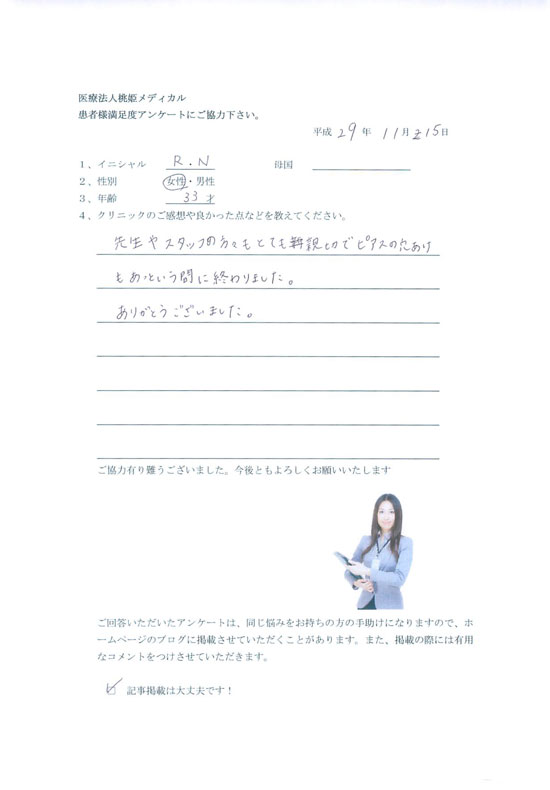 医療法人桃姫メディカル
患者様満足度アンケートにご協力下さい。
平成 29 年 11 月 15 日
1、イニシャル R.N 母国
2、性別 女性・男性
3、年齢 33 才
4、クリニックのご感想や良かった点などを教えてください。
先生やスタッフの方々もとても親切でピアスの穴あけ
もあっという間に終わりました。
ありがとうございました。
ご協力有り難うございました。今後ともよろしくお願いいたします
ご回答いただいたアンケートは、同じ悩みをお持ちの方の手助けになりますので、ホ
ームページのブログに掲載させていただくことがあります。また、掲載の際には有用
なコメントをつけさせていただきます。
記事掲載は大丈夫です！